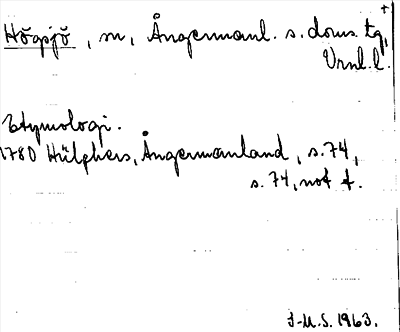 Högsjö, sn, Ångermanl. s. doms. tg,
Vrnl. l.
Etymologi.
1780 Hülphers, Ångermanland, s. 74,
s. 74, not f.
J-M.S. 1963.